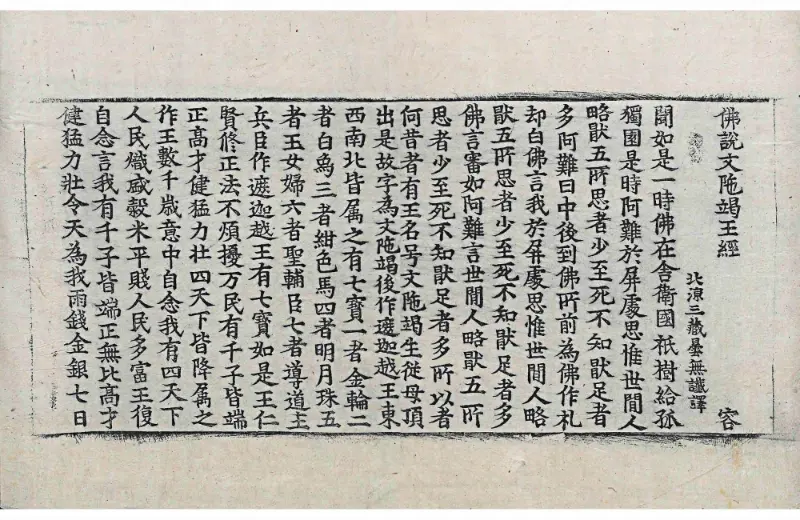 佛說文陁竭王經 容
北涼三藏曇無讖譯
聞如是一時佛在舍衛國祇樹給孤
獨園是時阿難於屏處思惟世間人
略猒五所思者少至死不知猒足者
多阿難日中後到佛所前為佛作礼
却白佛言我於屏處思惟世間人略
猒五所思者少至死不知猒足者多
佛言審如阿難言世間人略猒五所
思者少至死不知猒足者多所以者
何昔者有王名号文陁竭生從母頂
出是故字為文陁竭後作遮迦越王東
西南北皆属之有七寶一者金輪二
者白象三者紺色馬四者明月珠五
者玉女婦六者聖輔臣七者導道主
兵臣作遮迦越王有七寶如是王仁
賢修正法不煩擾万民有千子皆端
正高才健猛力壮四天下皆降属之
作王數千歲意中自念我有四天下
人民熾盛穀米平賤人民多富王復
自念言我有千子皆端正無比高才
健猛力壮令天為我雨錢金銀七日